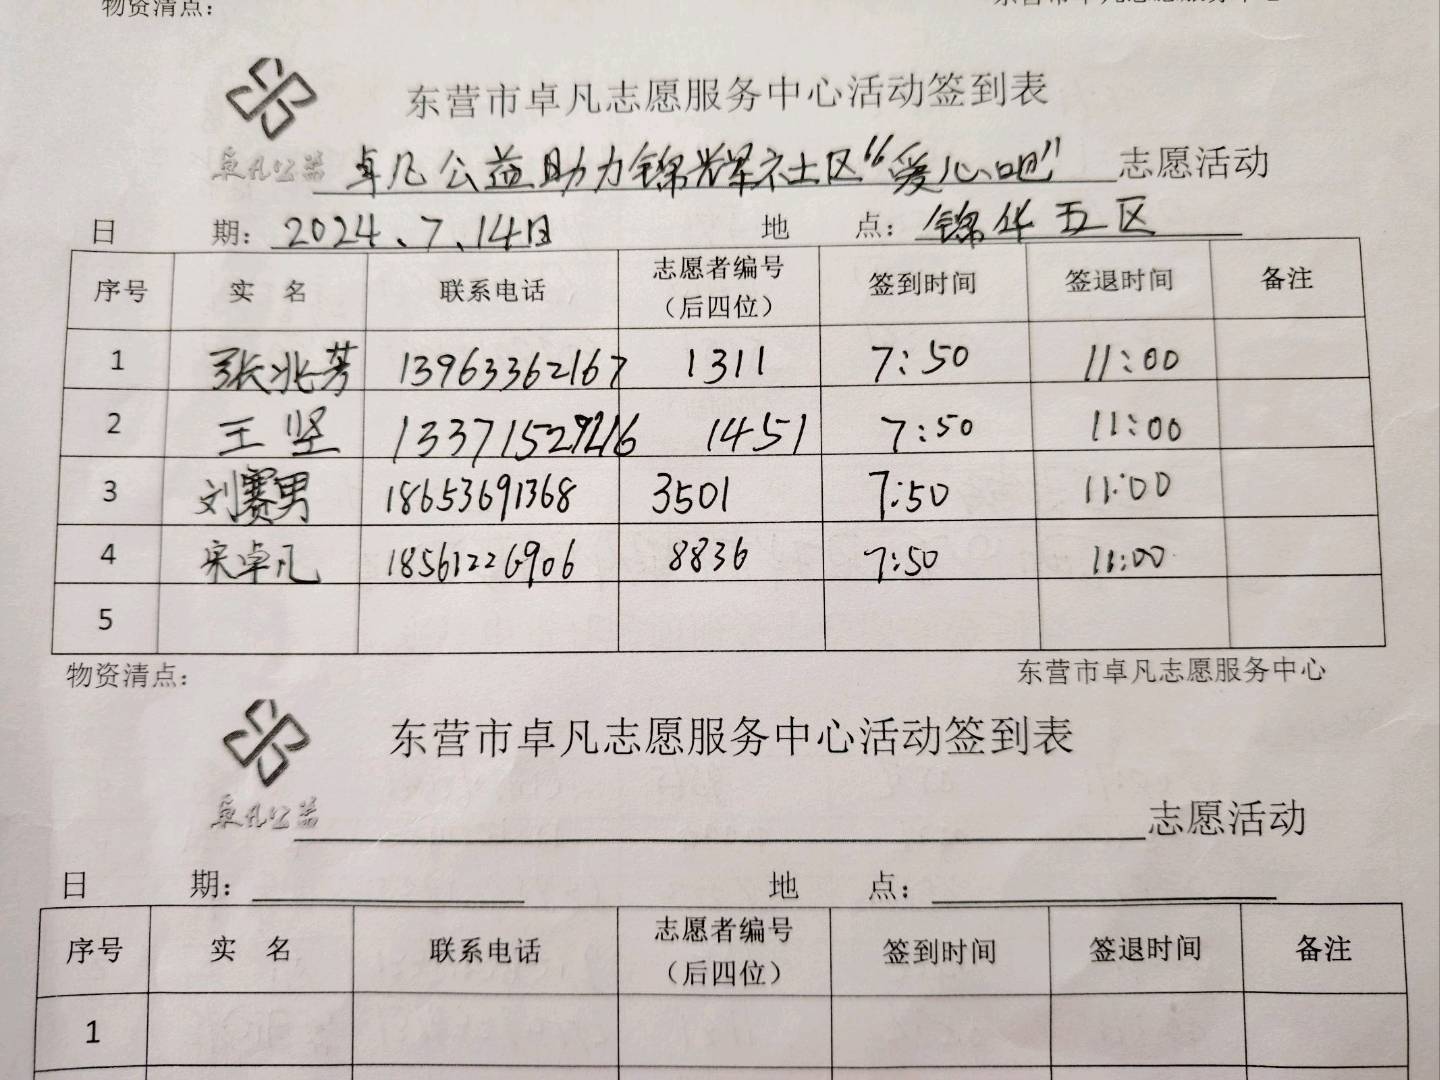 物资清点：
东营市卓凡志愿服务中心
东营市卓凡志愿服务中心活动签到表
卓凡公益
卓凡公益助力锦辉社区“爱心吧” 志愿活动
日 期：2024.7.14日 地 点：锦华五区
序号 实 名 联系电话 志愿者编号（后四位） 签到时间 签退时间 备注
1 张兆芳 13963362167 1311 7:50 11:00
2 王坚 1451 7:50 11:00
3 刘赛男 18653691368 3501 7:50 11:00
4 宋卓凡 18561226906 8836 7:50 11:00
5
物资清点： 东营市卓凡志愿服务中心
东营市卓凡志愿服务中心活动签到表
卓凡公益
志愿活动
日 期： 地 点：
序号 实 名 联系电话 志愿者编号（后四位） 签到时间 签退时间 备注
1